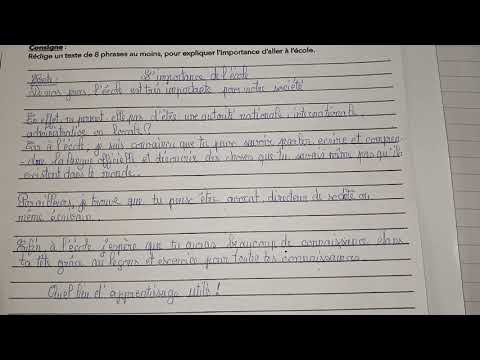 Consigne :
Rédige un texte de 8 phrases au moins, pour expliquer l'importance d'aller à l'école.
L'importance de l'école
De nos jours l'école est très importante pour notre société
En effet, permet-elle pas d'être une autorité nationale, internationale,
administrative ou locale?
Car à l'école, je suis convaincu que tu peux savoir parler, écrire et compren-
dre la langue officielle et découvrir des choses que tu savais même pas qu'ils
existent dans le monde.
Par ailleurs, je trouve que tu puisse être avocat, directeur de société ou
même écrivain.
Enfin, à l'école j'espère que tu auras beaucoup de connaissance dans
ta tête grâce au leçons et exercice pour toute tes connaissances.
Quel lieu d'apprentissage utile!